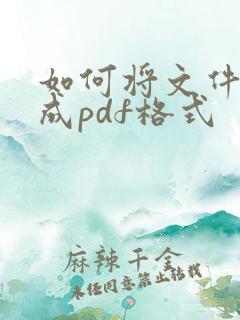 如何将文件
成pdf格式
麻辣千金
未经同意禁止转载